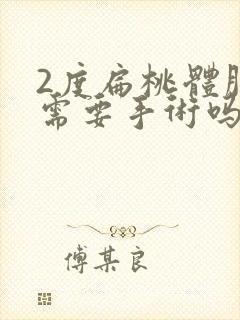 2度扁桃體
需要手術嗎
傅某良